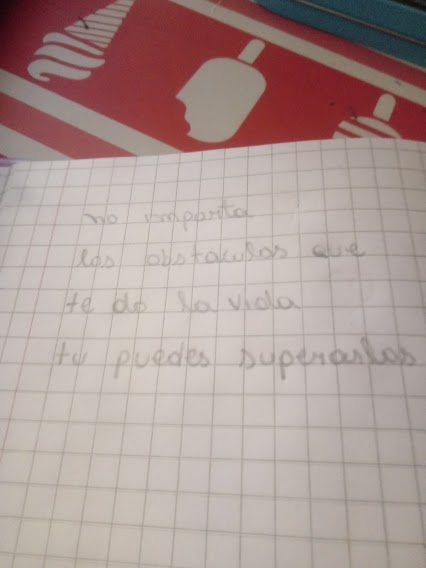 no importa
los obstaculos que
te da la vida
tu puedes superarlos